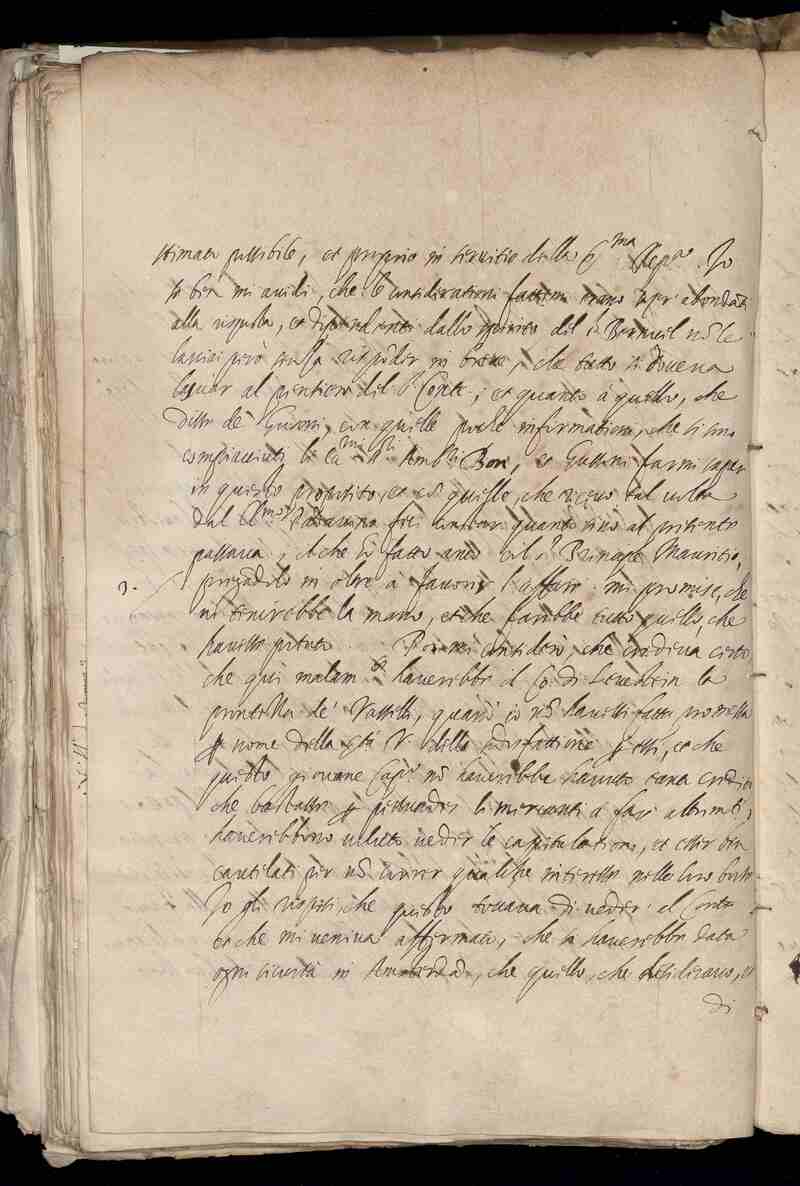 stimato possibile, et proprio in servitio della S.ma Rep.ca. Io
so ben mi avidi, che le considerationi fattemi erano per abondar
alla risposta, et dipendenti dallo spirito del s.r nõ le
lasciai però senza risponder in breve, che tutto si doveva
lasciar al pensiero del s.r Conte; et quanto à quello, che
disse de' Grisoni, con quelle poche informationi, che si sono
compiacciuti li Ecc.mi s.ri Amb.ri Bon, et Gussoni farmi saper
in questo proposito, et cõ quelle, che ricevo tal volta
dal Cl.mo Padavino feci constar quanto sino al presente
passava; il che hò fatto anco col s.r Principe Mauritio,
3. pregãdolo in oltre à favorir l'affare. mi promise, che
vi tenirebbe la mano, et che farebbe tutto quello, che
havesse potuto. Poi mi considerò, che credeva certo,
che qui malam.te haverebbe il Co. di Levestein la
prontezza de' Vasselli, quando io nõ havessi fatta promessa
ꝑ nome della S.tà V. della sodisfattione ꝑ essi, et che
questo giovane Cap.o nõ haverebbe havuto tanto credito
che bastasse ꝑ persuader li mercanti à far altrimẽti,
haverebbono voluto veder le capitulationi, et esser ben
cautelati per nõ correr qualche interesse nelle loro borse.
Io gli risposi, che questo toccava di veder al Conte
et che mi veniva affermato, che si haverebbe data
ogni sicurtà in Amsterdã, che quello, che desideravo, et
di